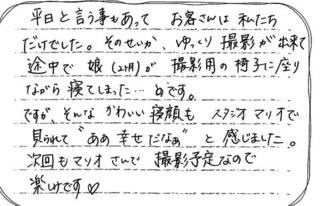 平日と言う事もあって お客さんは 私たち
だけでした。そのせいか、ゆっくり 撮影が出来て
途中で 娘(2才)が 撮影用の椅子に座り
ながら 寝てしまった…のです。
ですが、そんな かわいい 寝顔も スタジオマリオで
見られて “ああ 幸せだなぁ” と 感じました。
次回も マリオさんで 撮影予定なので
楽しみです♡